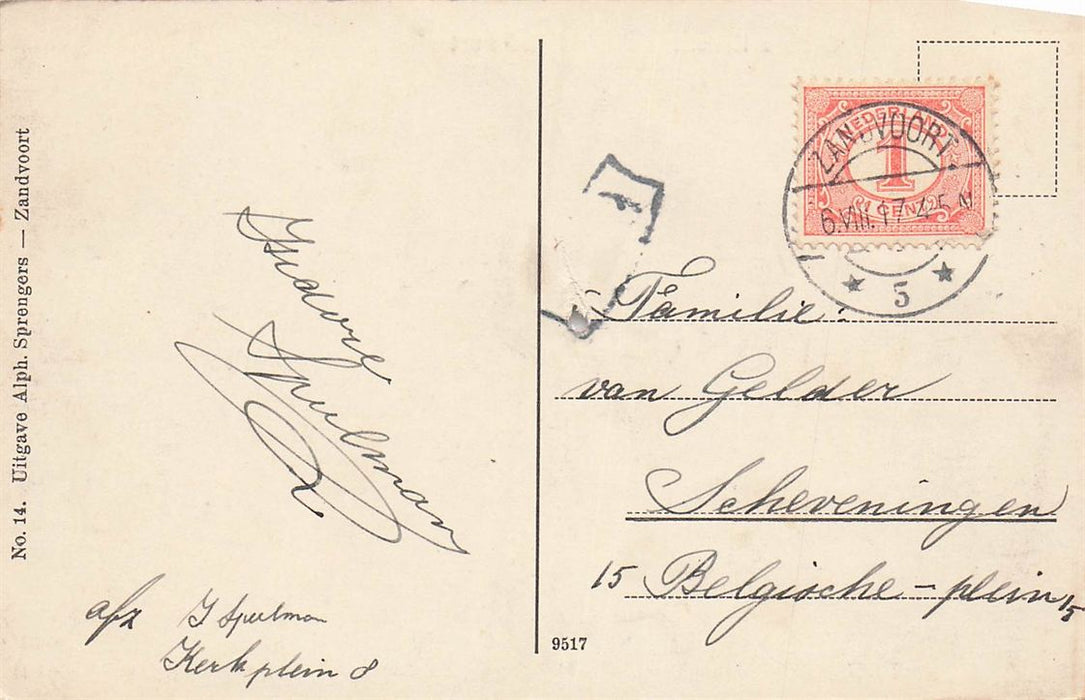 No. 14. Uitgave Alph. Sprengers — Zandvoort
Isidore
Speelman
afz I Speelman
Kerkplein 8
NEDERLAND
1
1 CENT
ZANDVOORT
6.VIII.17 4-5 N
5
1
Familie
van Gelder
Scheveningen
15 Belgische-plein 15
9517